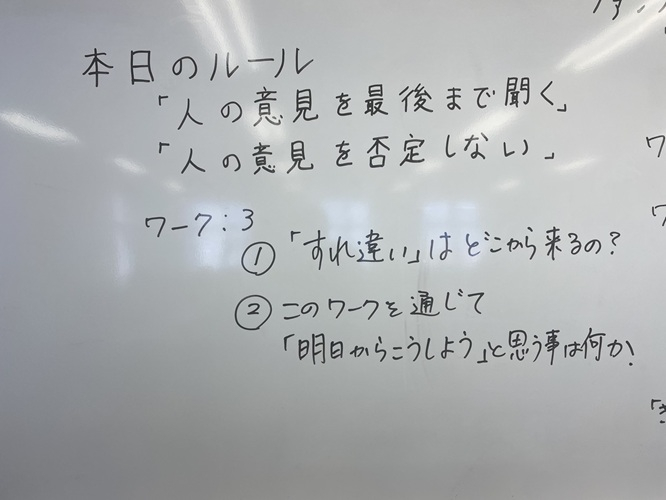 本日のルール
「人の意見を最後まで聞く」
「人の意見を否定しない」
ワーク:3
①「すれ違い」はどこから来るの?
②このワークを通じて
「明日からこうしよう」と思う事は何か!